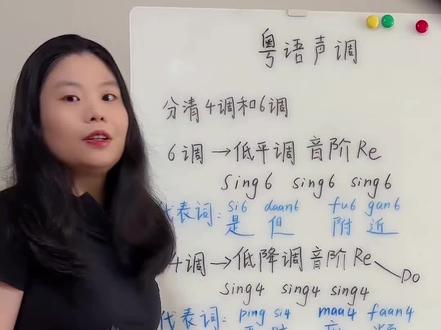 粤语声调
分清4调和6调
6调→低平调 音阶Re
Sing6 sing6 sing6
代表词: si6 daan6 fu6 gan6
是 但 附 近
调→低降调 音阶Re Do
sing4 sing4 sing4
代表词: ping si4 maa4 faan4